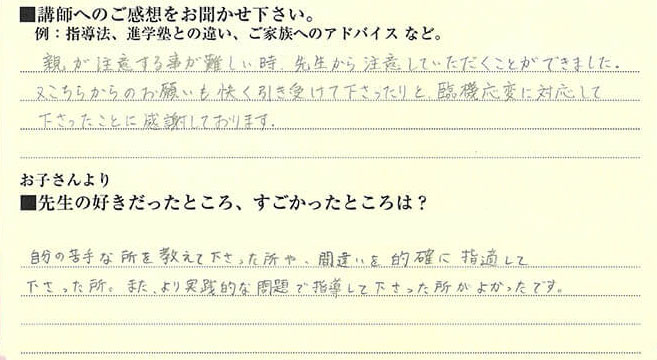 ■講師へのご感想をお聞かせ下さい。
例：指導法、進学塾との違い、ご家族へのアドバイス など。
親が注意する事が難しい時、先生から注意していただくことができました。
又こちらからのお願いも快く引き受けて下さったりと、臨機応変に対応して
下さったことに感謝しております。
お子さんより
■先生の好きだったところ、すごかったところは？
自分の苦手な所を教えて下さった所や、間違いを的確に指適して
下さった所。また、より実践的な問題で指導して下さった所がよかったです。